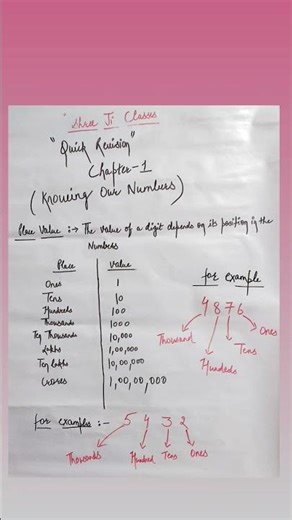 "Shree Ji Classes
"Quick Revision"
Chapter-1
(Knowing Our Numbers)
Place Value :→ The value of a digit depends on its position in the
Numbers
Place Value
Ones 1
Tens 10
Hundreds 100
Thousands 1000
Ten Thousands 10,000
Lakhs 1,00,000
Ten lakhs 10,00,000
Crores 1,00,00,000
for example
4 8 7 6
Thousand Ones
Tens
Hundreds
for examples :- 5 4 3 2
Thousands Hundred Tens Ones